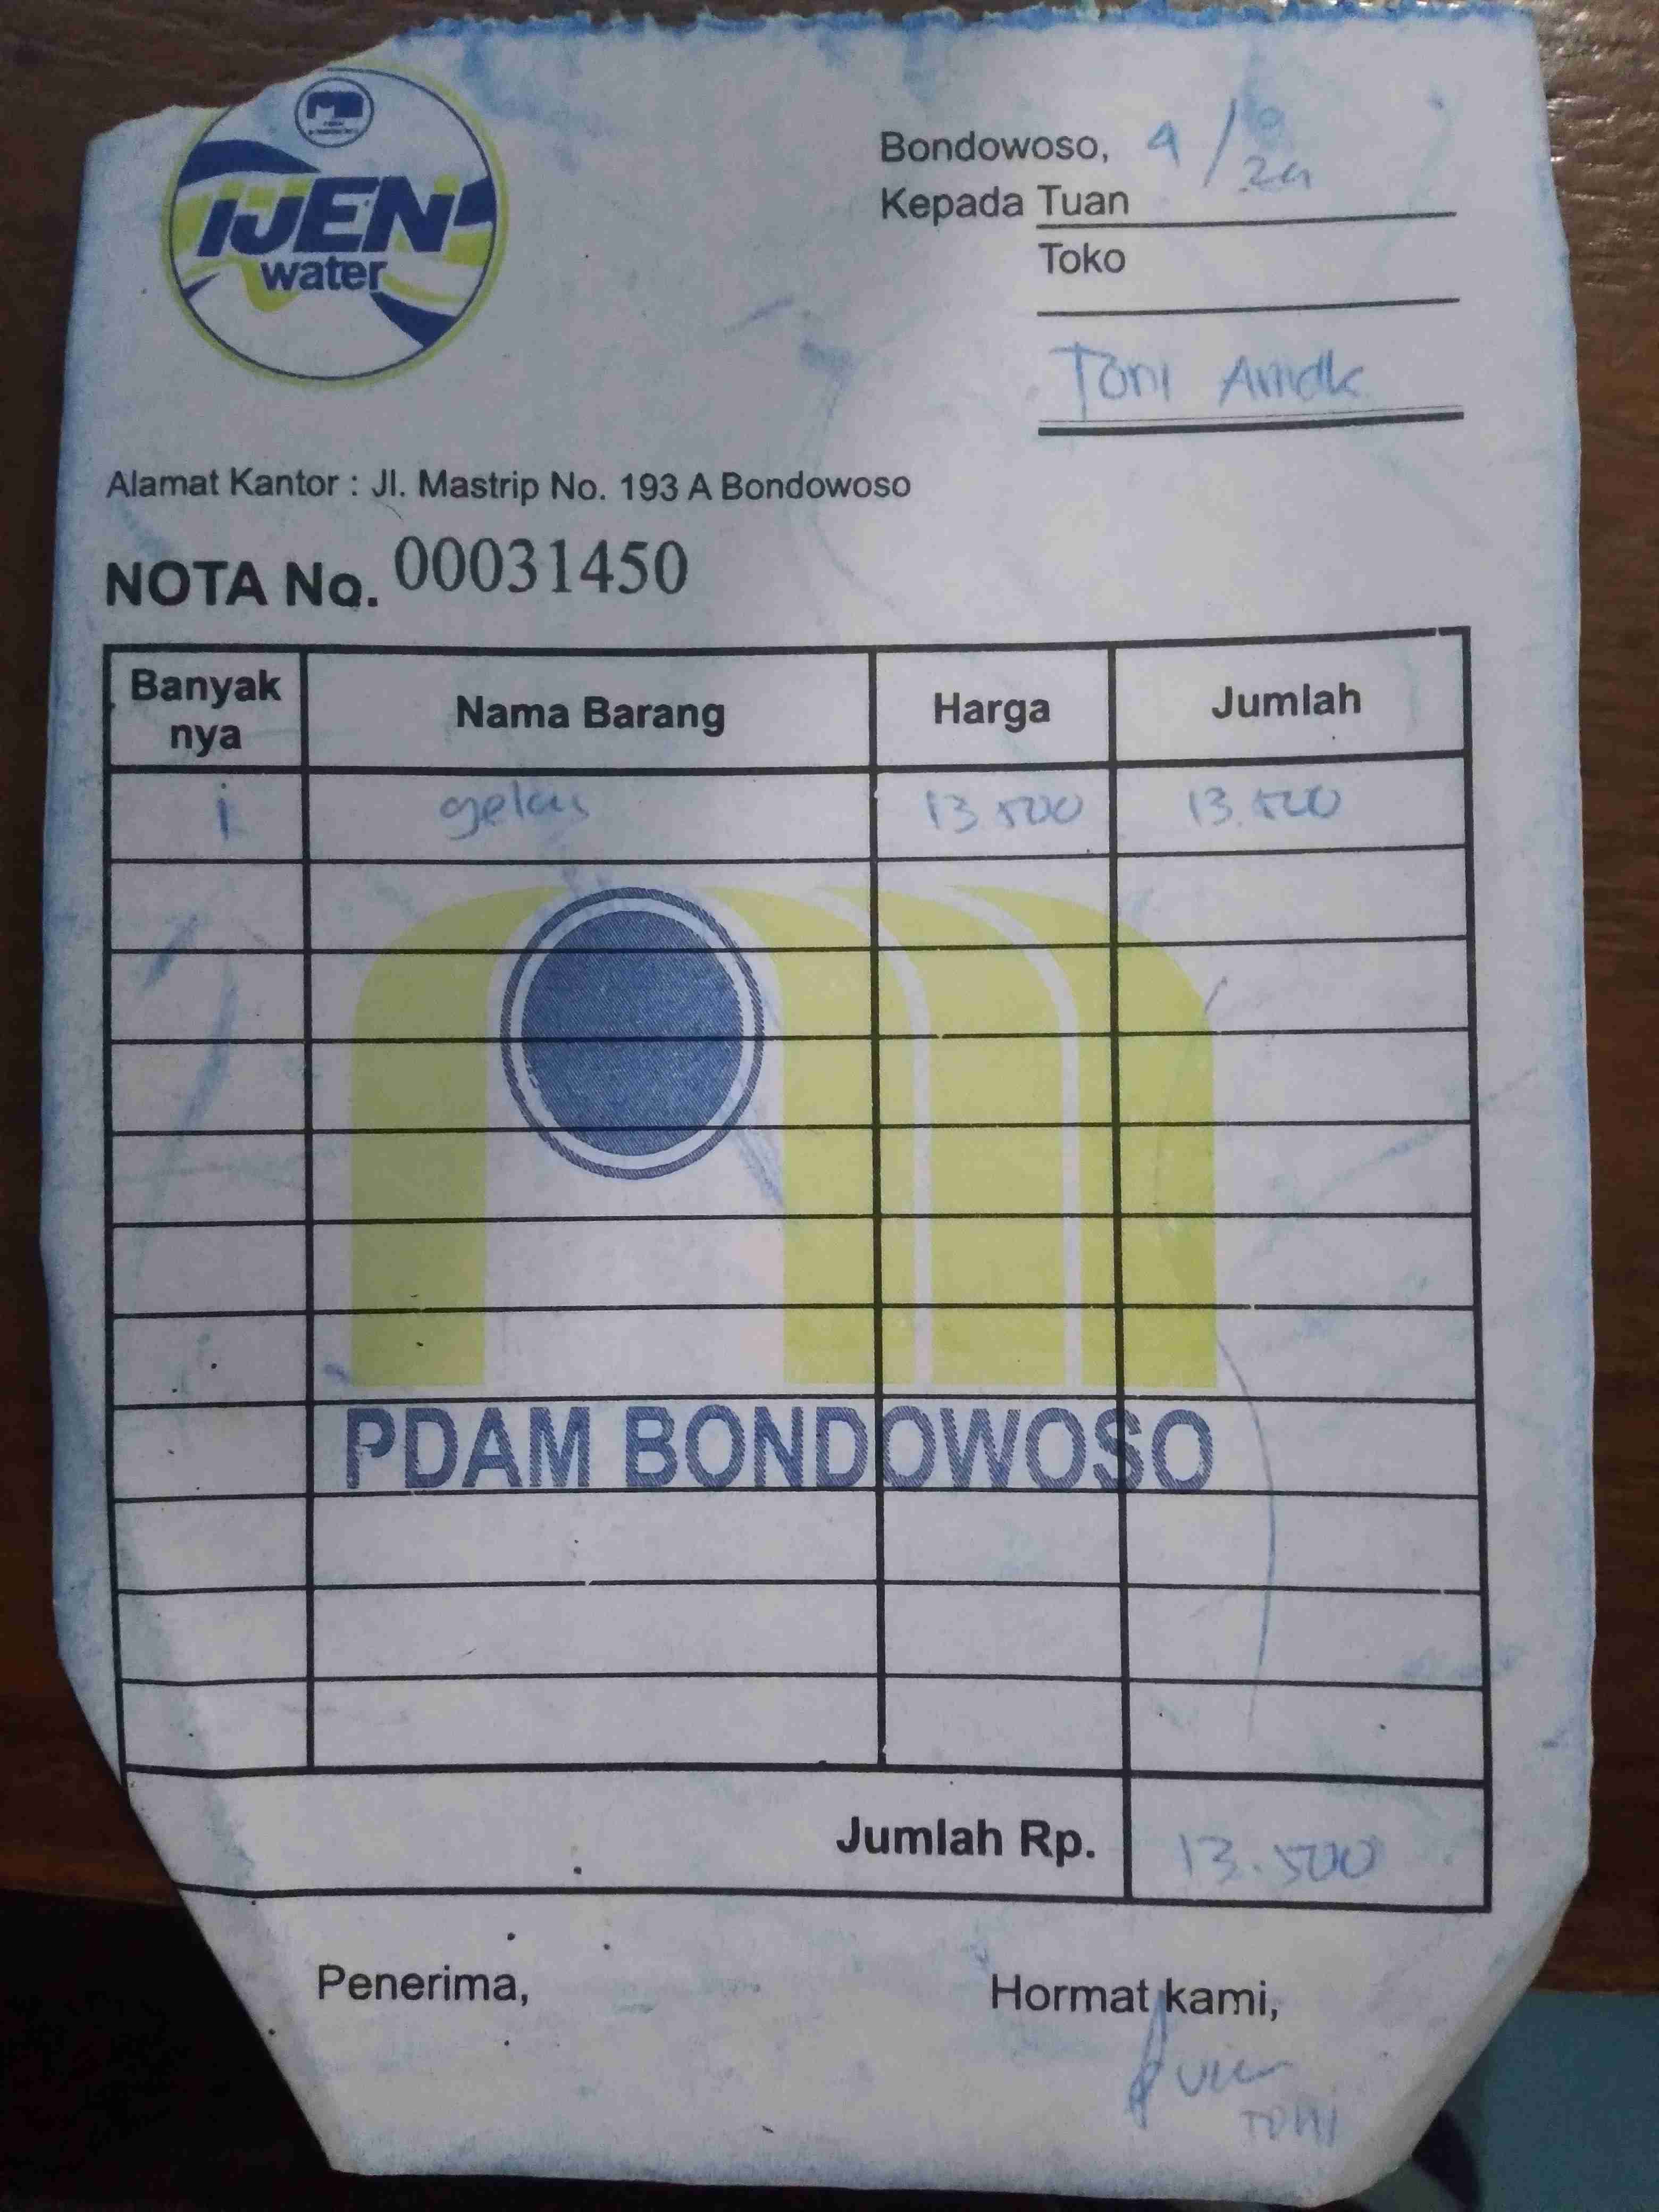 IJEN
water
Bondowoso, 9/8
24
Kepada Tuan
Toko
Toni Amdk
Alamat Kantor : Jl. Mastrip No. 193 A Bondowoso
NOTA No. 00031450
Banyak nya Nama Barang Harga Jumlah
1 gelas 13.500 13.500
PDAM BONDOWOSO
Jumlah Rp. 13.500
Penerima, Hormat kami,
TONI